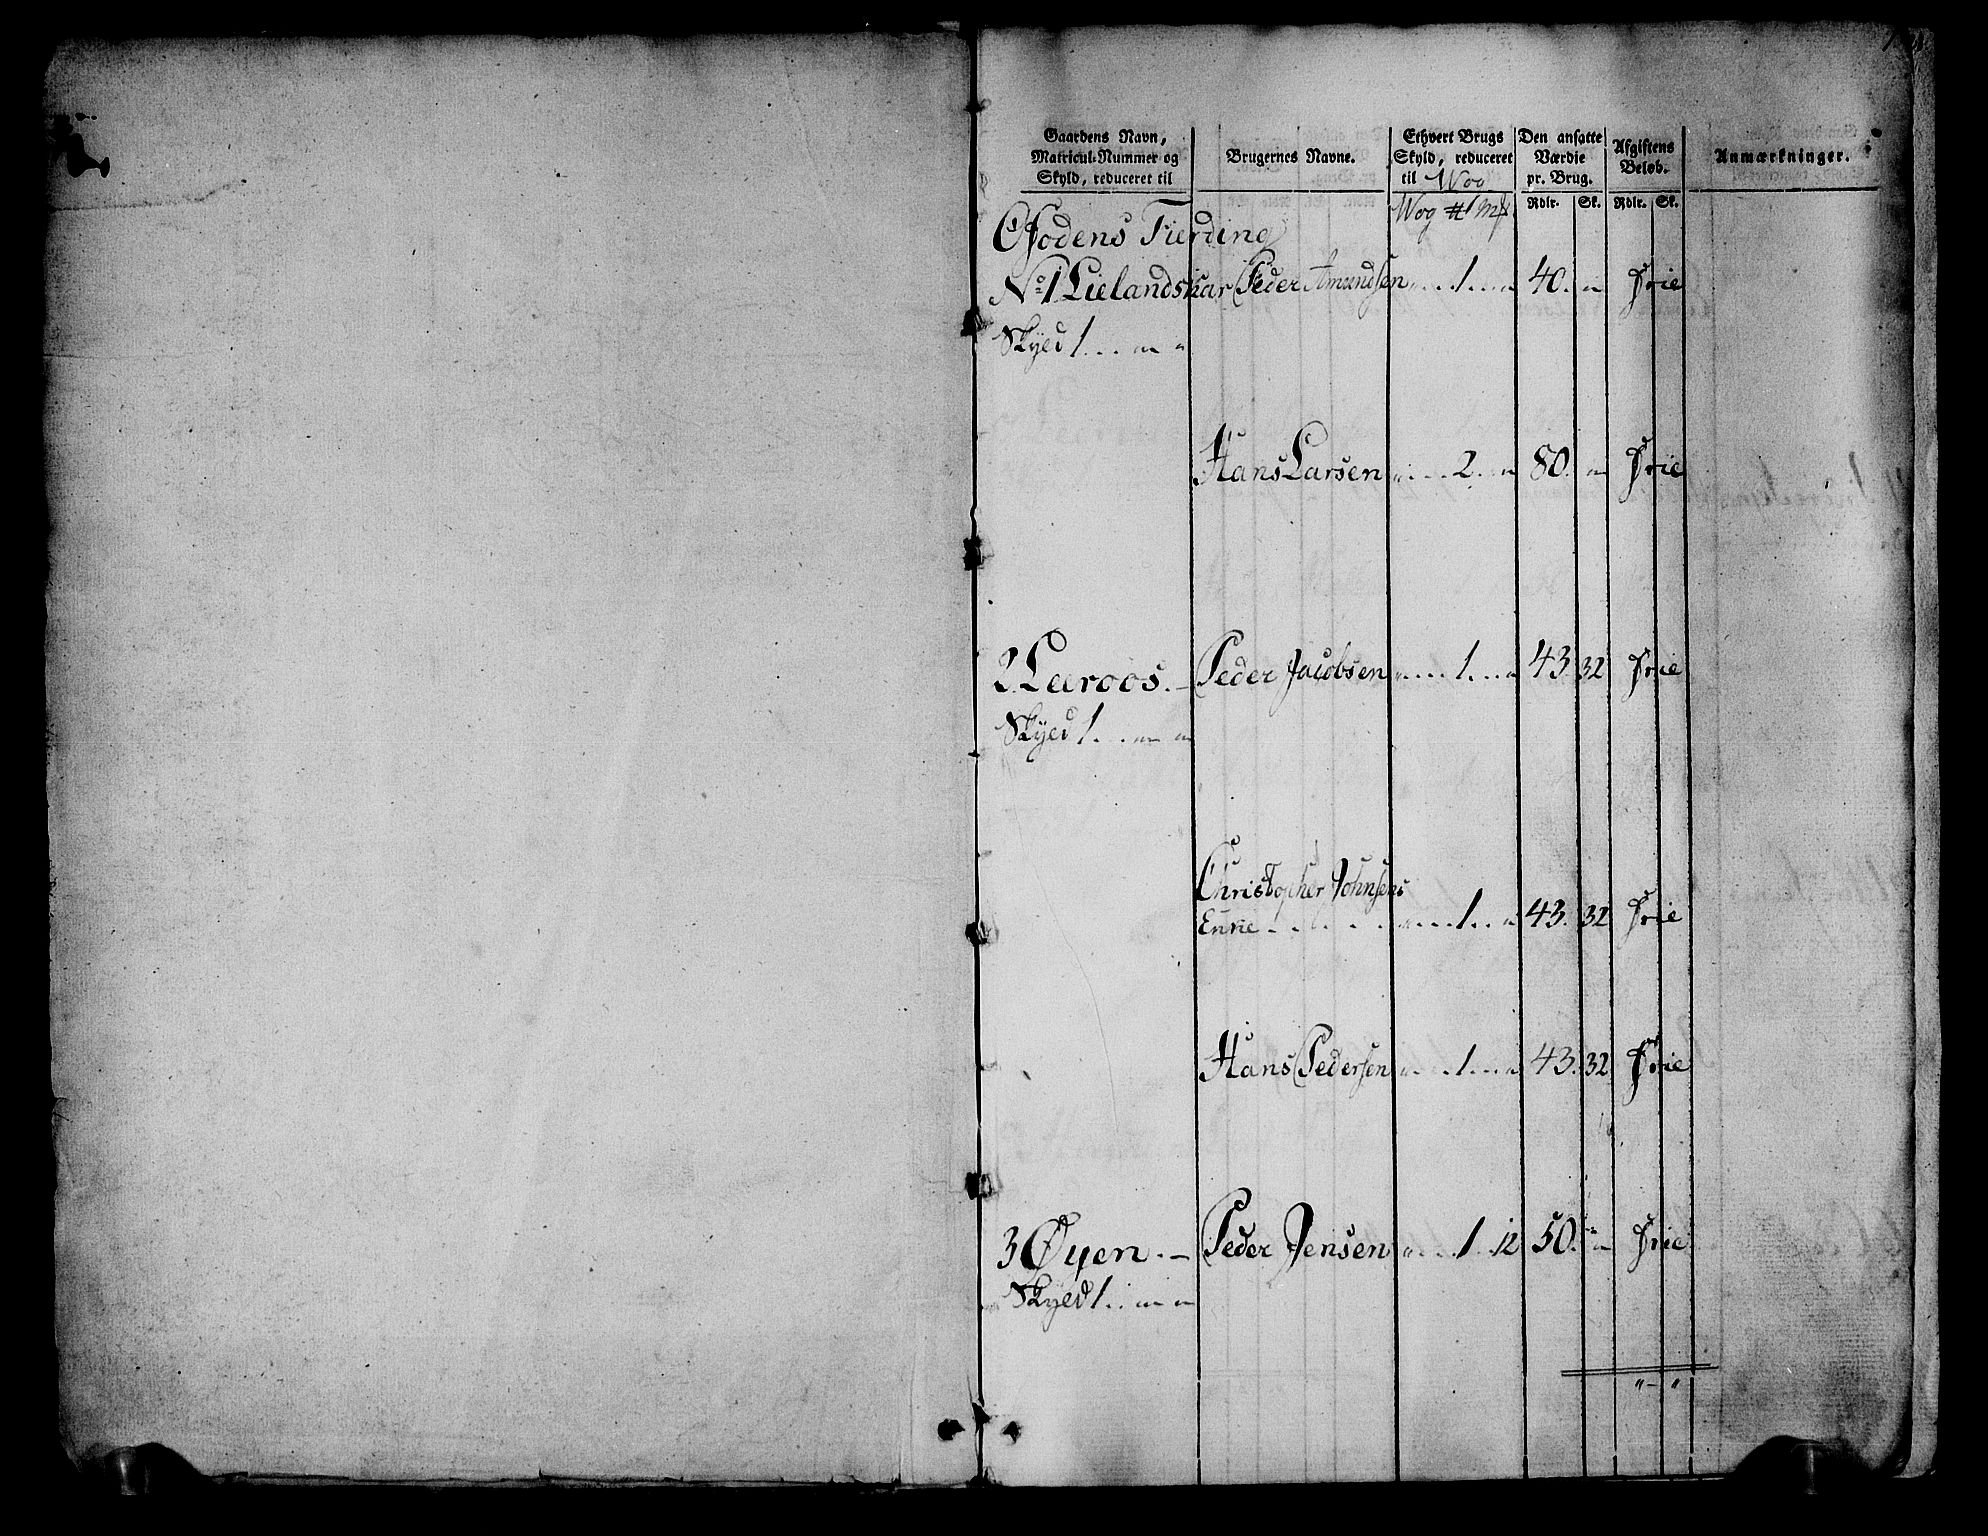 Gaardens Navn, Matricul-Nummer og Skyld, reduceret til
Brugernes Navne.
Ethvert Brugs Skyld, reduceret til Wog
Den ansatte Værdie pr. Brug.
Afgiftens Beløb.
Anmærkninger.
Wog # Mk
Rdlr. Sk. Rdlr. Sk.
Ofodens Fierding
No 1 Lielandskar Peder Amundsen 1 40 Frie
Skyld 1
Hans Larsen 2 80 Frie
2 Læroos Peder Jacobsen 1 43 32 Frie
Skyld 1
Christopher Johnsens
Enne 1 43 32 Frie
Hans Pedersen 1 43 32 Frie
3 Øyen Peder Jensen 1 12 50 Frie
Skyld 1
" - "